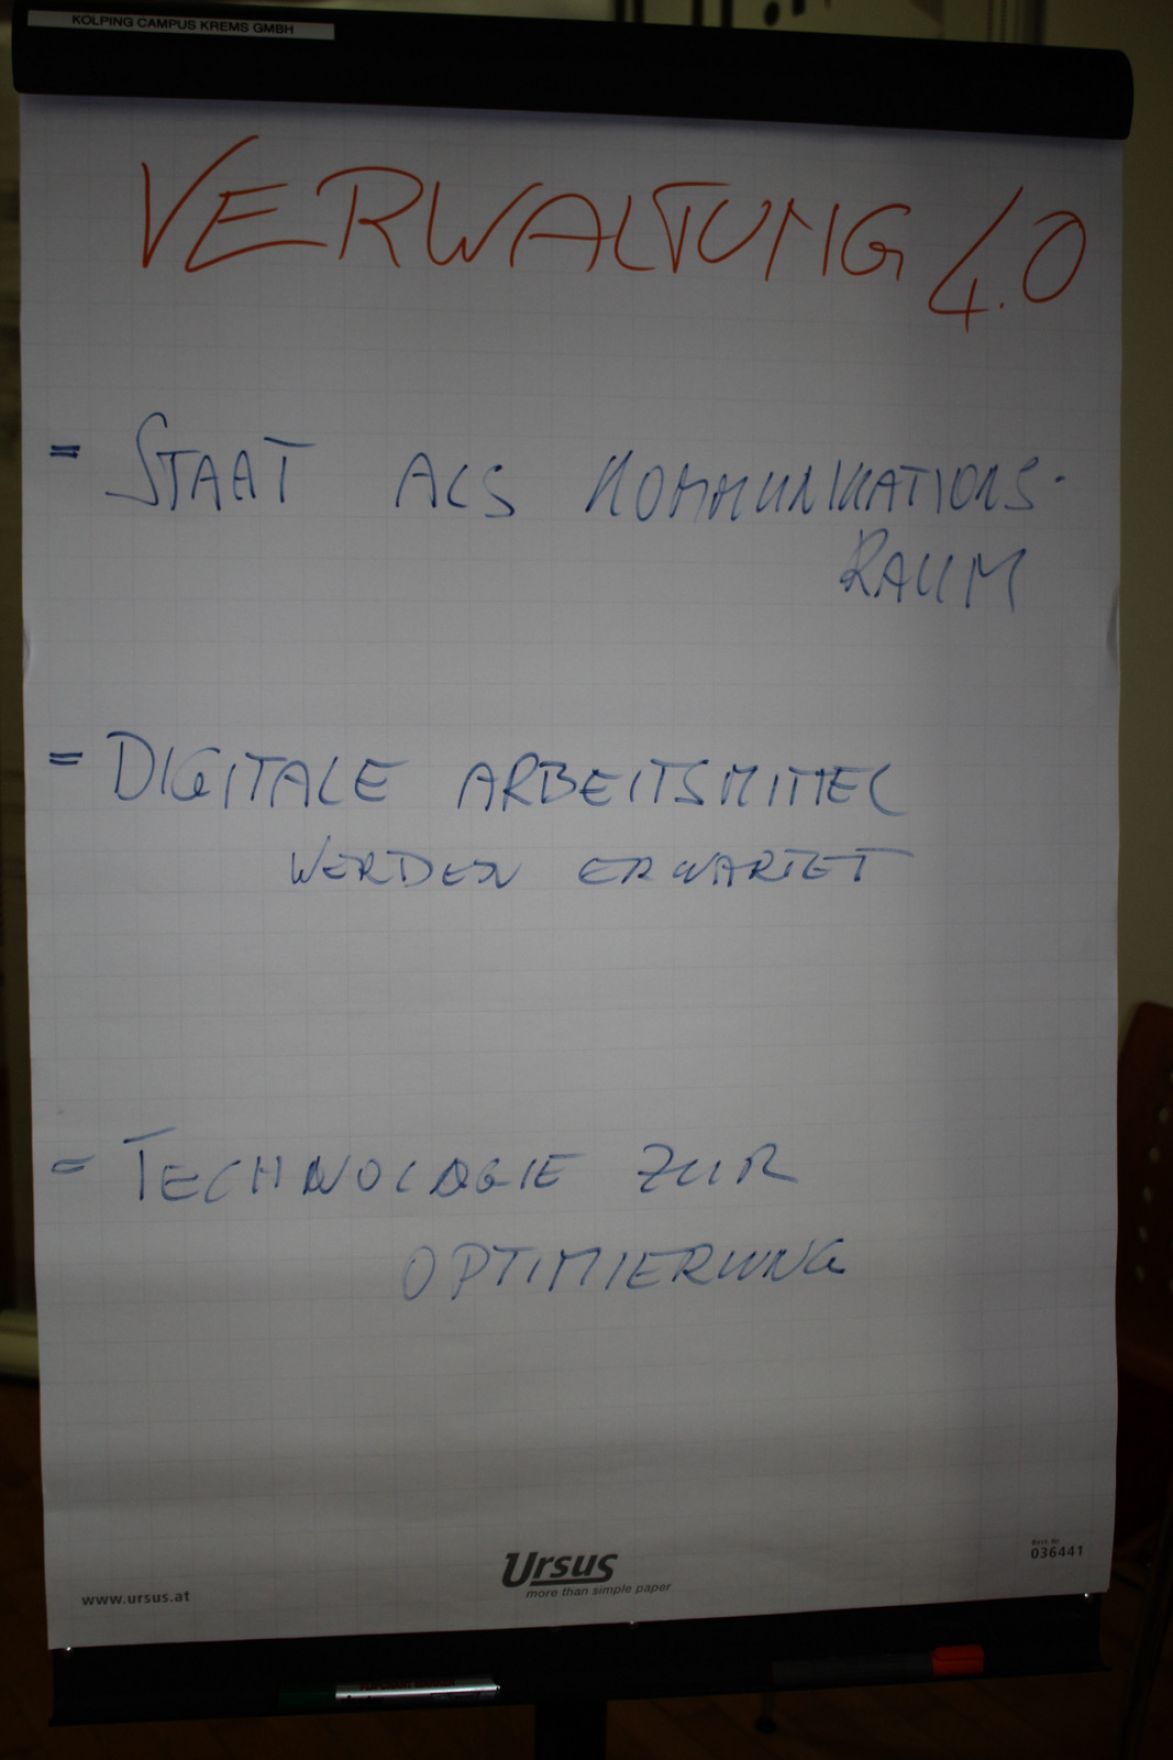 KOLPING CAMPUS KREMS GMBH
VERWALTUNG 4.0
= STAAT ALS KOMMUNIKATIONS-
RAUM
= DIGITALE ARBEITSMITTEL
WERDEN ERWARTET
= TECHNOLOGIE ZUR
OPTIMIERUNG
Ursus
more than simple paper
www.ursus.at
Best. Nr.
036441